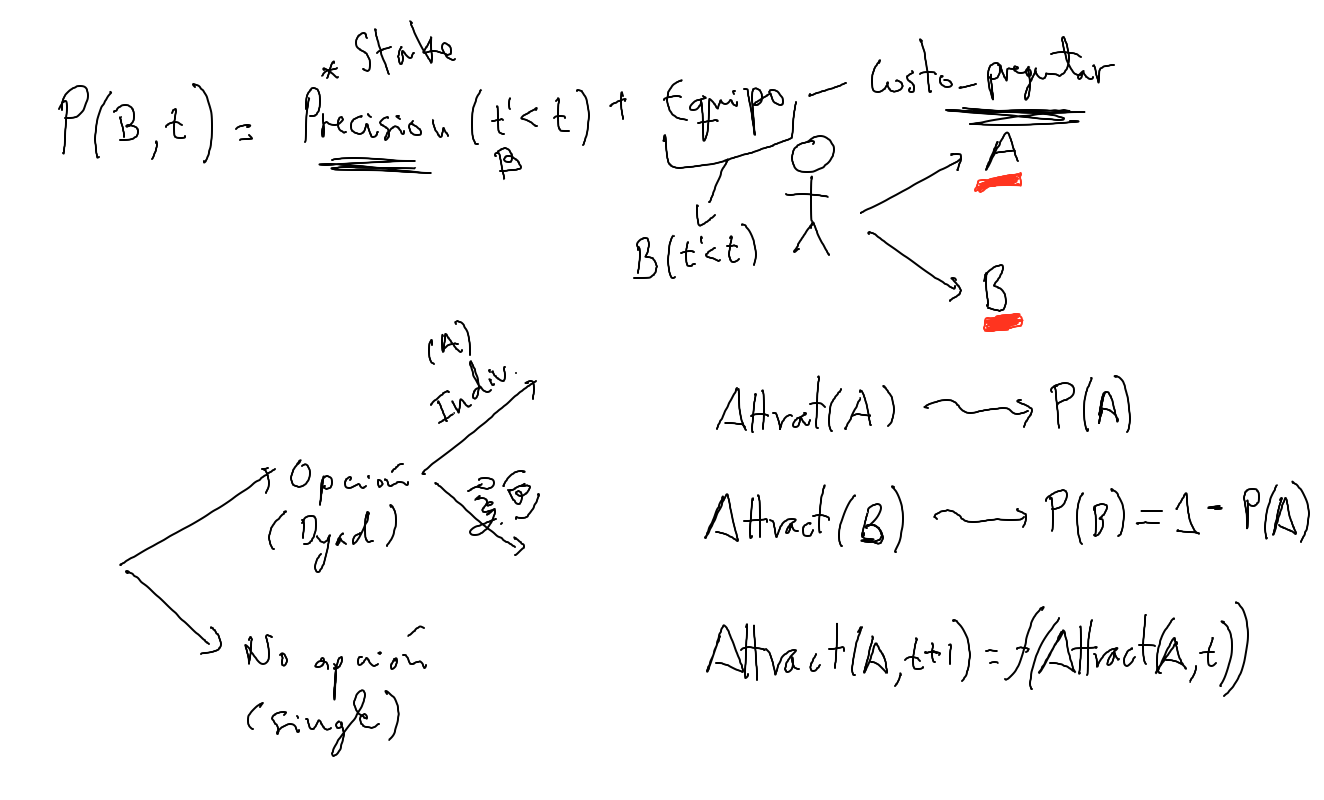 * Stake
P(B,t) = Precision (t'<t) + Equipo - Costo_preguntar
B
B(t'<t)
A
B
(A)
Indiv.
Opción
(Dyad)
(B)
No opción
(single)
Attrat(A) → P(A)
Attract(B) → P(B) = 1 - P(A)
Attract(A,t+1) = f(Attract(A,t))